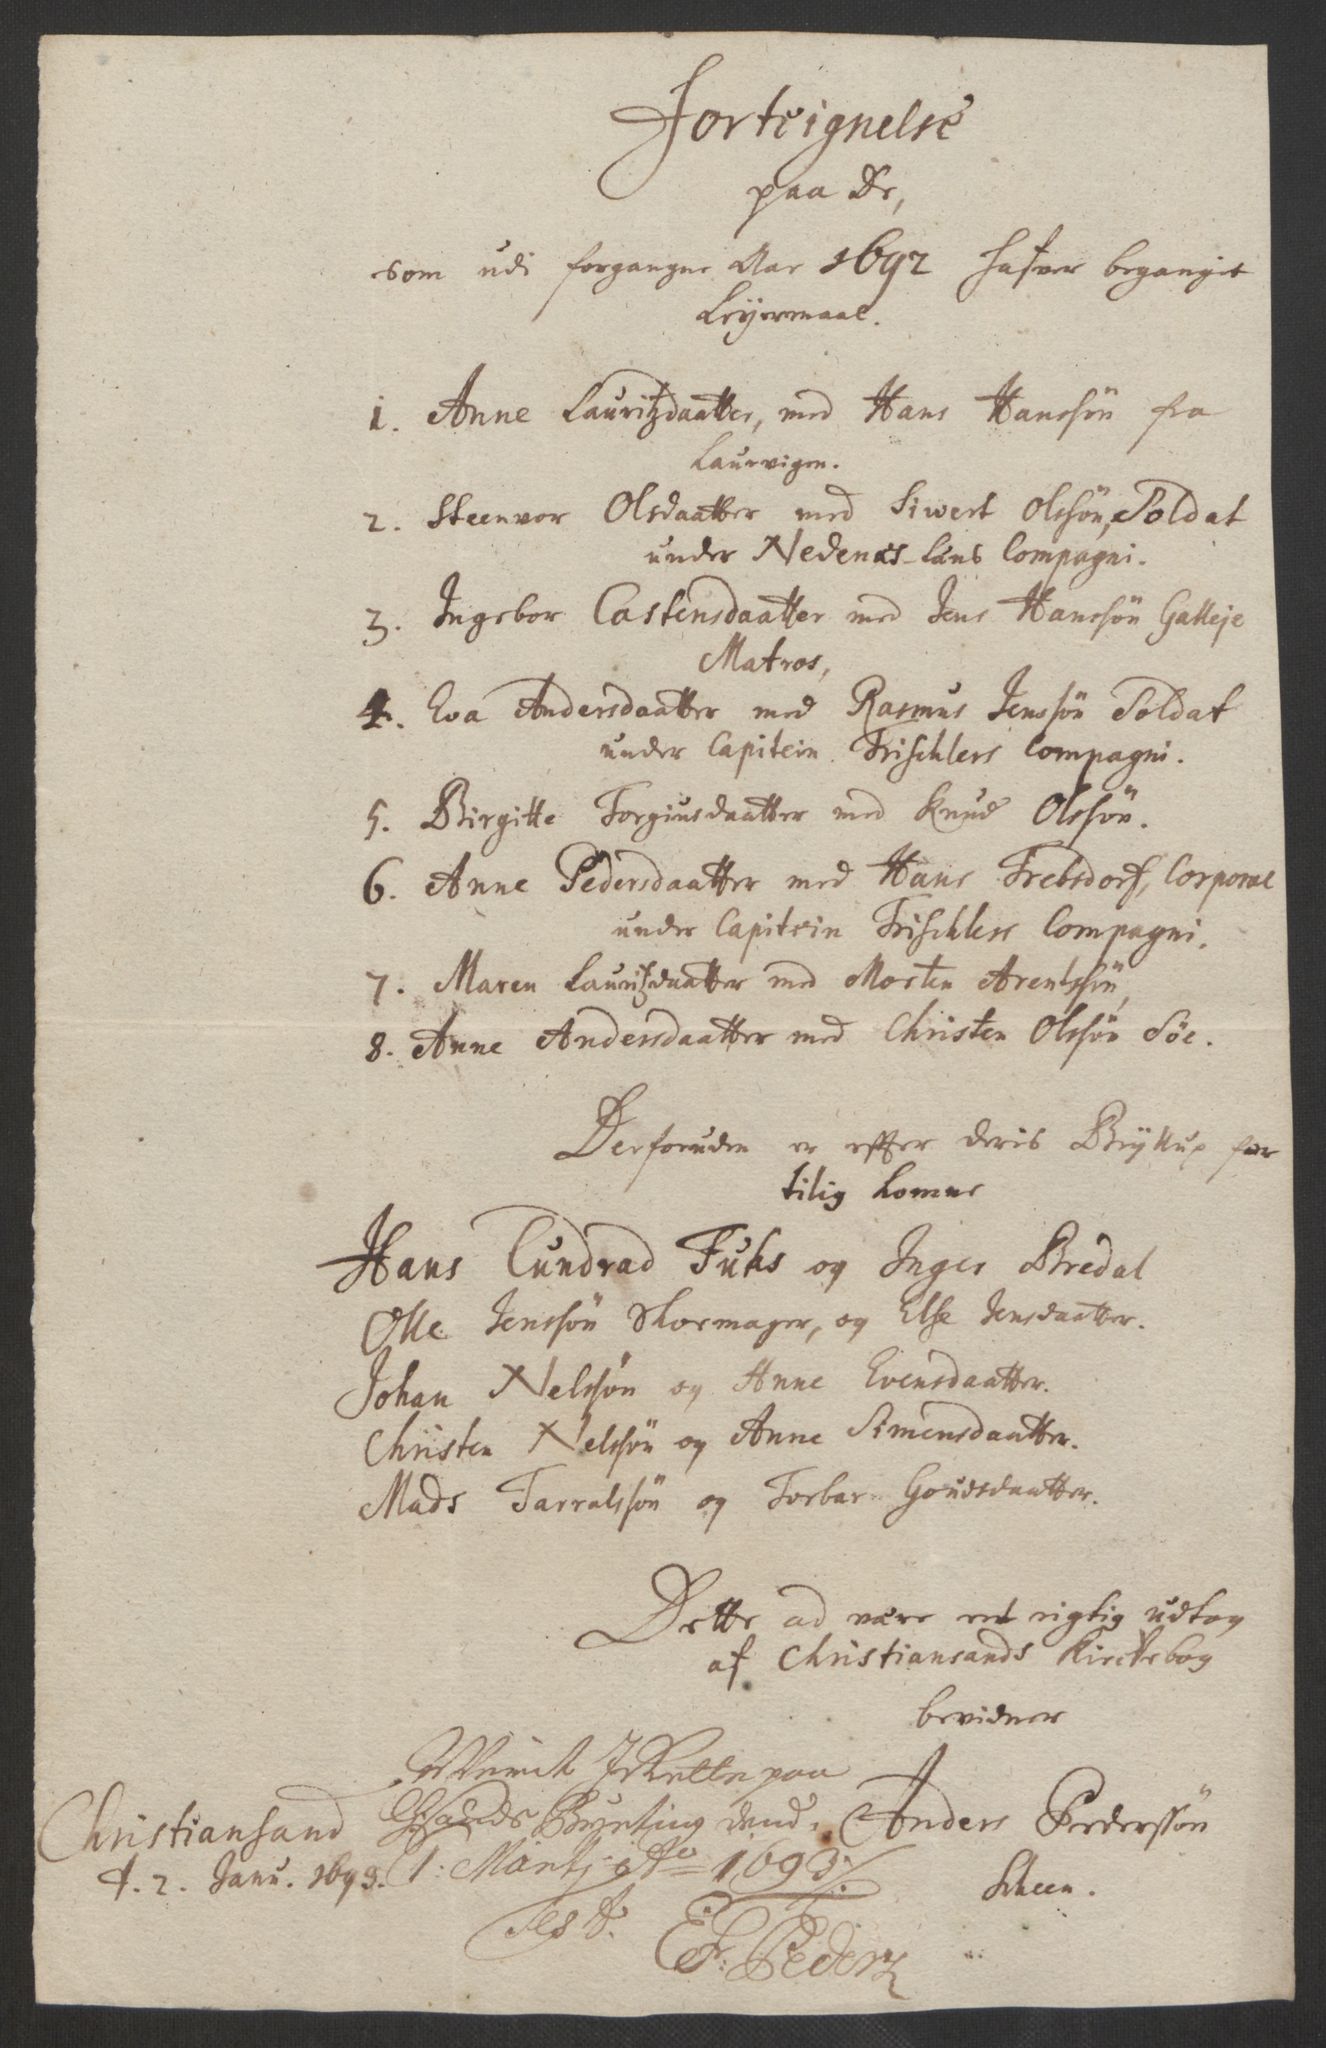 Forteignelse
paa De,
som udi forgangne Aar 1692 hafver beganget
Leyermaal.
1. Anne Lauritzdaatter, med Hans Hanssön fra
Laurvigen.
2. Steenvor Olsdaatter med Siwert Olssön, Soldat
under Nedenæs-Læns Compagni.
3. Ingebor Castensdaatter med Jens Hanssön Galleje
Matros,
4. Eva Andersdaatter med Rasmus Jenssön Soldat
under Capitein Frischlers Compagni.
5. Birgitte Torgiusdaatter med Knud Olssön.
6. Anne Pedersdaatter med Hans Trebsdorf, Corporal
under Capitein Frischlers Compagni.
7. Maren Lauritzdaatter med Morten Arentssön,
8. Anne Andersdaatter med Christen Olssön Söe.
Derforuden er effter deris Bryllup for
tilig komne
Hans Cundrad Fuhs og Inger Bredal
Olle Jenssön Skormager, og Else Jensdaatter.
Johan Nelssön og Anne Evensdaatter.
Christen Nelssön og Anne Simensdaatter.
Mads Tarralssön og Torbar Goudsdaatter.
Dette ad være ret rigtig udtog
af Christiansands Kirckebog
bevidner
Anders Pederssön
Skeen.
Christiansand
d. 2. Janu. 1693.
I Rette paa
Byeting dend
1: Martj Ao 1693
Test.
Pederz